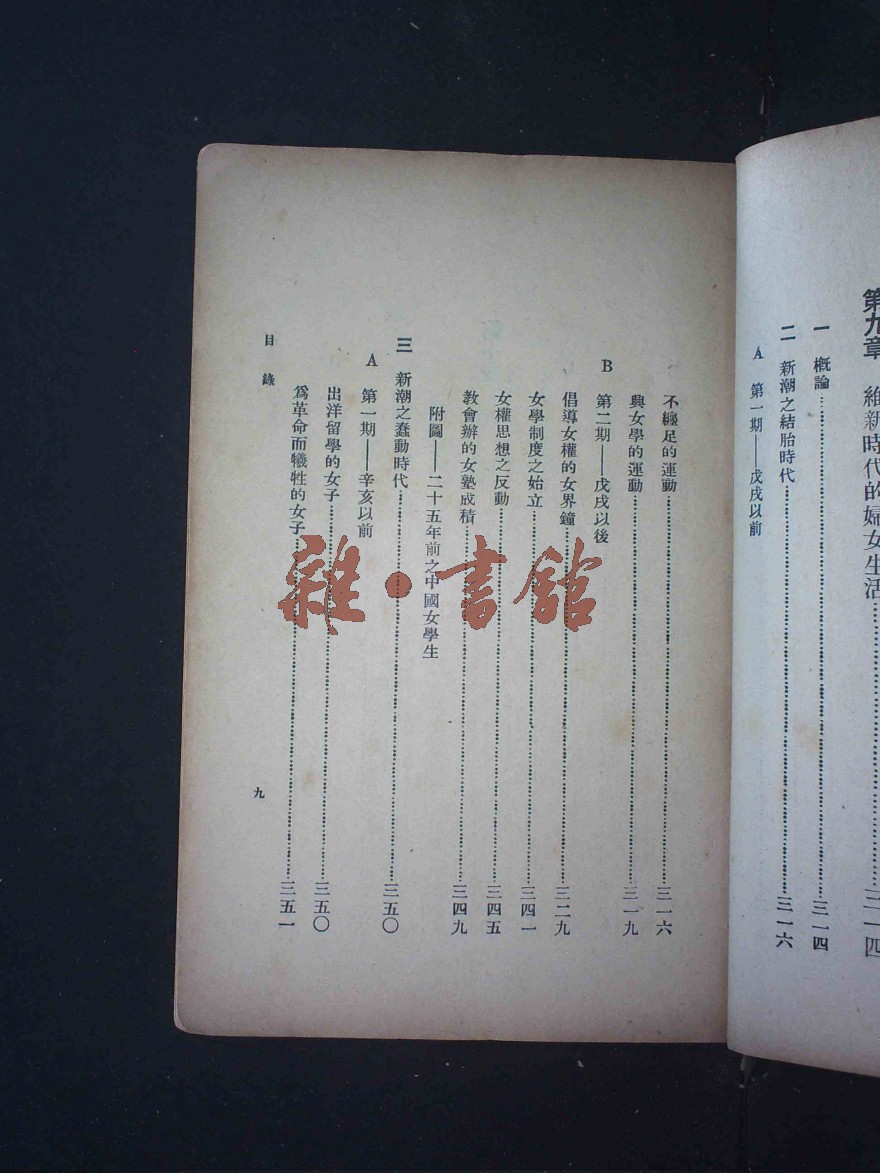 第九章　維新時代的婦女生活……三一四
一　概論……三一四
二　新潮之結胎時代……三一六
A　第一期——戊戌以前
不纏足的運動……三一六
興女學的運動……三一九
B　第二期——戊戌以後
倡導女權的女界鐘……三二九
女學制度之始立……三四一
女權思想之反動……三四五
教會辦的女塾成積……三四九
附圖——二十五年前之中國女學生
三　新潮之蠢動時代……三五〇
A　第一期——辛亥以前
出洋留學的女子……三五〇
爲革命而犧牲的女子……三五一
目錄
九
雜·書館